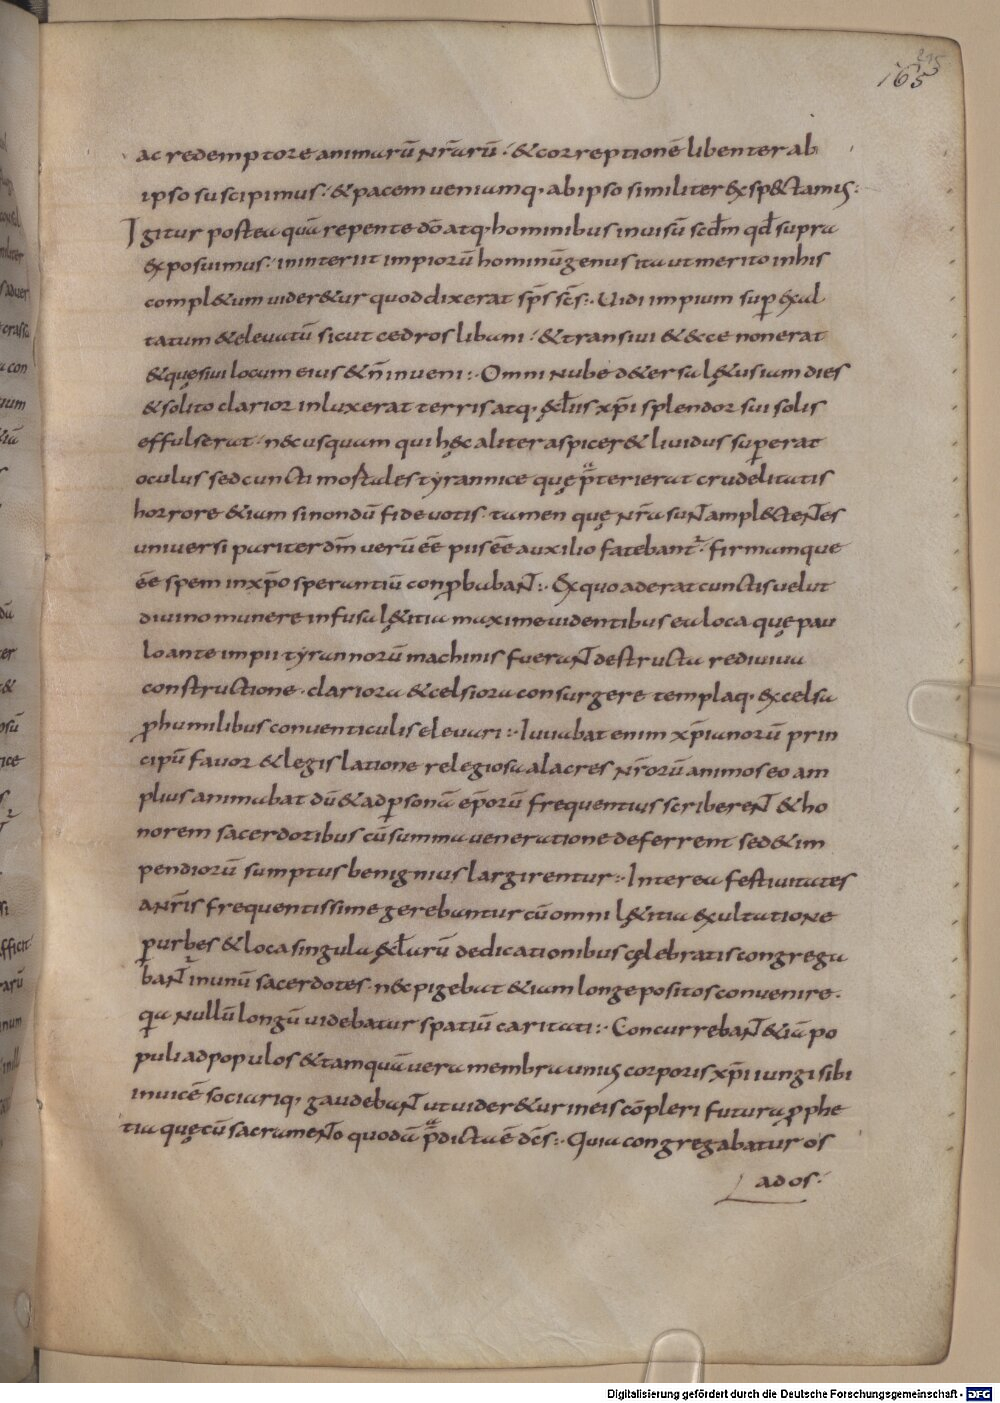 165
215
ac redemptore animarū nr̄arū· &correptionē libenter ab
ipso suscipimus· &pacem ueniamq· abipso similiter exsp&tamus:
Igitur posteaquā repente dō atq· hominibus inuisū scdm qd supra
exposuimus· ininteriit impiorū hominū genus ita ut merito inhis
compl&um uider&ur quod dixerat sp̄s sc̄s:· Uidi impium sup exal
tatum &eleuatū sicut cedros libani· &transiui &ecce nonerat
&quęsiui locum eius &n̄ inueni:· Omni nube d&ersa l&usiam dies
&solito clarior inluxerat terris atq· ęcl̄iis xp̄i splendor sui solis
effulserat· necusquam qui hęc aliter aspicer& liuidus superat
oculus sedcuncti mortales tyrannice quę p̄terierat crudelitatis
horrore &iam sinondū fide uotis· tamen quę nr̄a sunt amplectentes
uniuersi pariter dm̄ uerū ēē piis ēē auxilio fatebant· firmamque
ēē spem inxp̄o sperantiū conprobabant:· Exquo aderat cunctis uelut
diuino munere infusa lętitia maxime uidentibus ea loca quę pau
lo ante impii tyrannorū machinis fuerant destructa rediuiua
constructione· clariora &celsiora consurgere templaq· excelsa
p humilibus conuenticulis eleuari:· Iuuabat enim xp̄ianorū prin
cipū fauor &legislatione relegiosa alacres nr̄orū animos eo am
plius animabat dū &ad psonā ep̄orū frequentius scriberent &ho
norem sacerdotibus cū summa ueneratione deferrent sed&im
pendiorū sumptus benignius largirentur:· Interea festiuitates
anr̄is frequentissime gerebantur cū omni lętitia exultatione
p urbes &loca singula ęcl̄arū dedicationibus cęlebratis congrega
bant inunū sacerdotes· nec pigebat &iam longe positos conuenire·
qa nullū longū uidebatur spatiū caritati:· Concurrebant &iā po
puli ad populos &tamquā uera membra unius corporis xp̄i iungi sibi
inuicē sociariq· gaudebant ut uider&ur ineis cōpleri futura pphe
tia quę cū sacramento quodā p̄dicta ē dc̄s:· Quia congregabatur os
ad os·
Digitalisierung gefördert durch die Deutsche Forschungsgemeinschaft - DFG